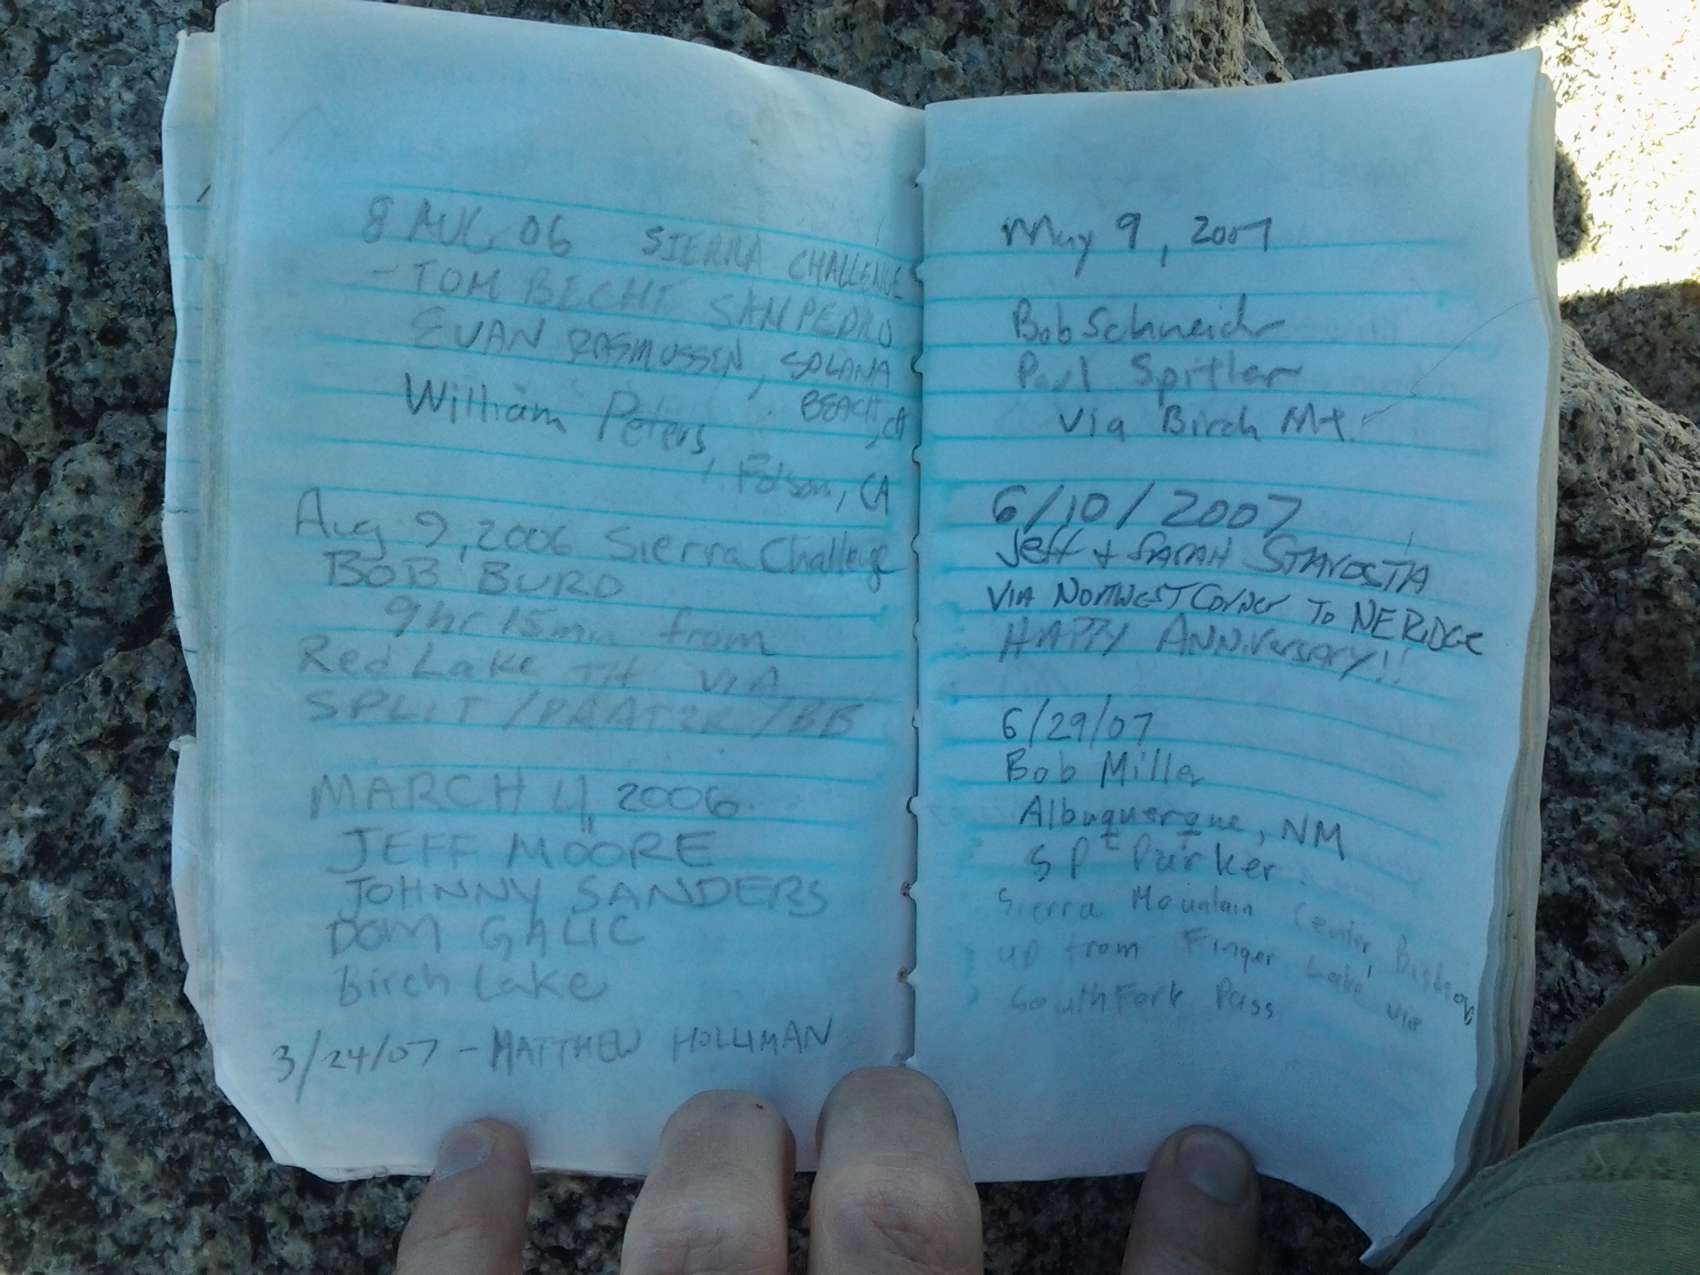 8 AUG 06 SIERRA CHALLENGE
- TOM BECHT SAN PEDRO
EVAN RASMUSSEN, SOLANA
BEACH, CA
William Peters,
Folsom, CA
Aug 9, 2006 Sierra Challenge
BOB BURD
9hr 15min from
Red Lake TH VIA
SPLIT/PRATER/BB
MARCH 4, 2006
JEFF MOORE
JOHNNY SANDERS
DOM GALIC
Birch Lake
3/24/07 - MATTHEW HOLLIMAN
May 9, 2007
Bob Schneider
Paul Spitler
via Birch Mt.
6/10/2007
Jeff + SARAH STAROSTA
VIA NORTHWEST Corner To NE RIDGE
HAPPY ANNiversary!!
6/29/07
Bob Miller
Albuquerque, NM
SP Parker
Sierra Mountain Center Bishop
up from Finger Lake via
SouthFork Pass